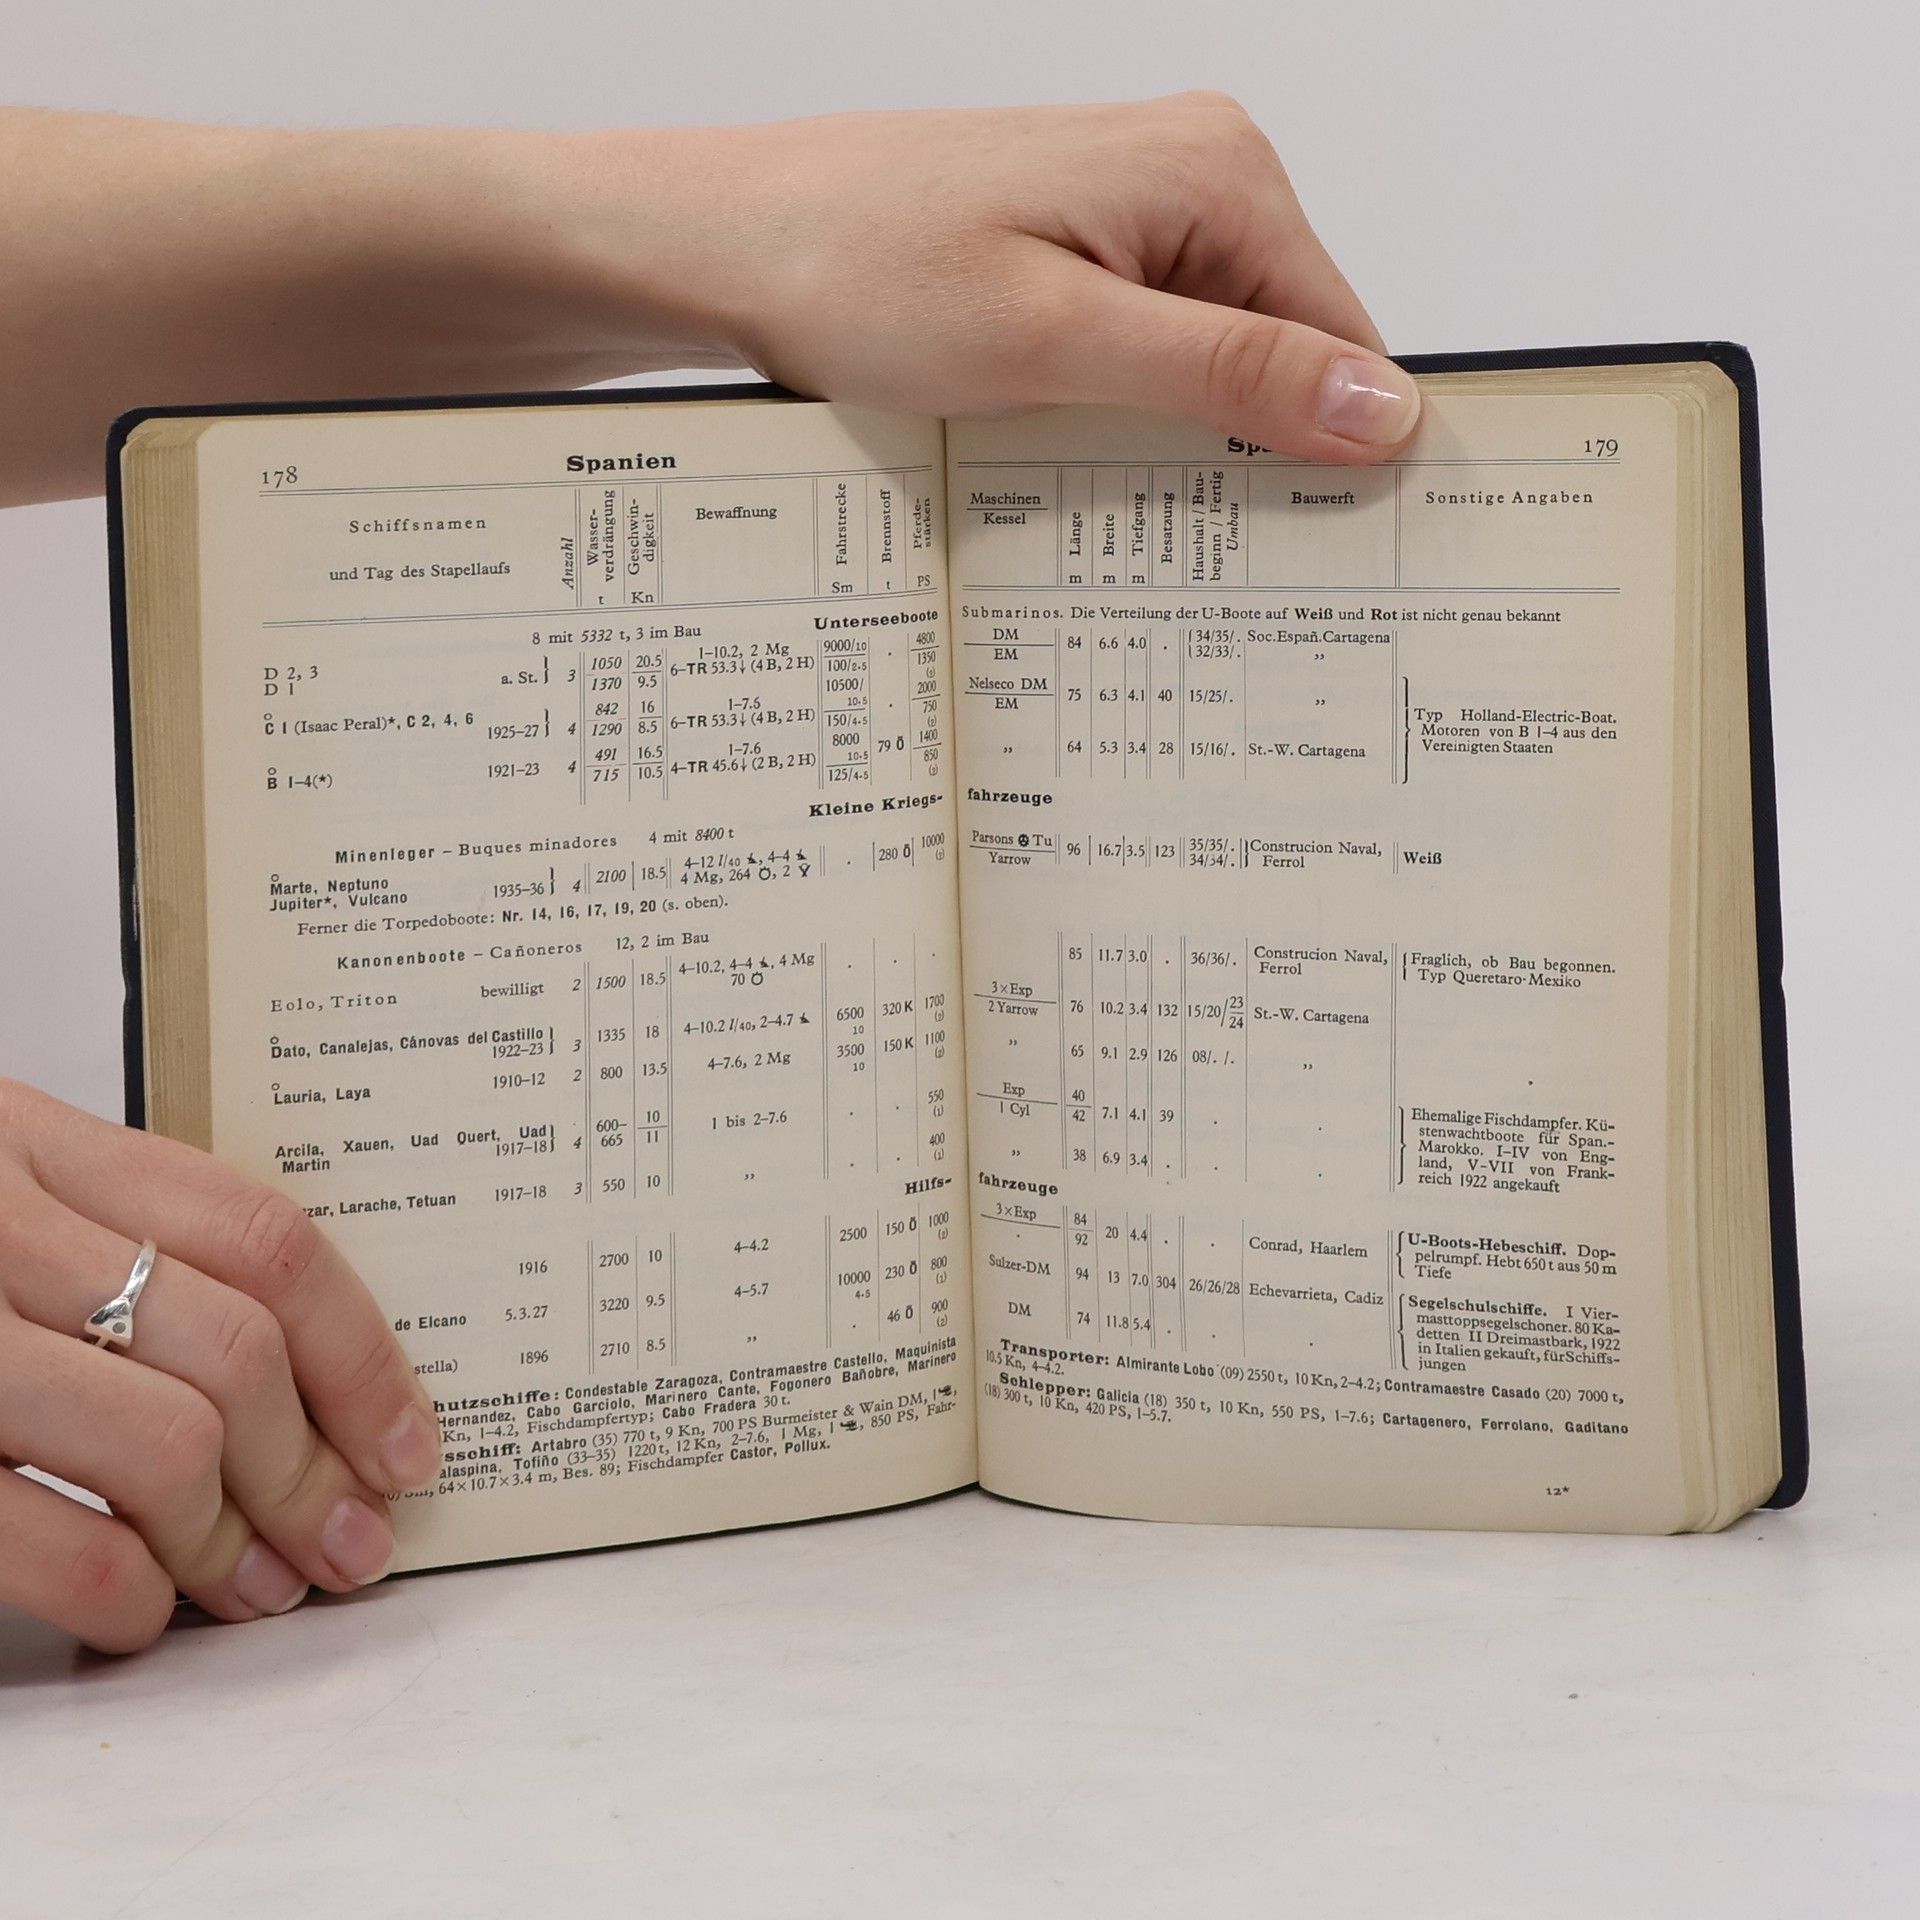 178 Spanien
Schiffsnamen
und Tag des Stapellaufs
Anzahl
Wasser-
verdrängung
t
Geschwin-
digkeit
Kn
Bewaffnung
Fahrstrecke
Sm
Brennstoff
t
Pferde-
stärken
PS
Unterseeboote
8 mit 5332 t, 3 im Bau
D 2, 3
D 1
a. St. } 3 1050 20.5 1–10.2, 2 Mg 9000/10 . 4800
1370 9.5 6–TR 53.3↓ (4 B, 2 H) 100/2.5 1350
(2)
C 1 (Isaac Peral)*, C 2, 4, 6
1925–27 } 4 842 16 1–7.6 10500/ 10.5 . 2000
1290 8.5 6–TR 53.3↓ (4 B, 2 H) 150/4.5 750
(2)
B 1–4(*) 1921–23 4 491 16.5 1–7.6 8000 10.5 79 Ö 1400
715 10.5 4–TR 45.6↓ (2 B, 2 H) 125/4.5 850
(2)
Kleine Kriegs-
Minenleger – Buques minadores 4 mit 8400 t
Marte, Neptuno
Jupiter*, Vulcano
1935–36 } 4 2100 18.5 4–12 l/40, 4–4 . 280 Ö 10000
4 Mg, 264, 2 (2)
Ferner die Torpedoboote: Nr. 14, 16, 17, 19, 20 (s. oben).
Kanonenboote – Cañoneros 12, 2 im Bau
Eolo, Triton bewilligt 2 1500 18.5 4–10.2, 4–4, 4 Mg . . .
70
Dato, Canalejas, Cánovas del Castillo }
1922–23 } 3 1335 18 4–10.2 l/40, 2–4.7 6500 320 K 1700
10 (2)
Lauria, Laya 1910–12 2 800 13.5 4–7.6, 2 Mg 3500 150 K 1100
10 (2)
Arcila, Xauen, Uad Quert, Uad }
Martin 1917–18 } 4 600– 10 1 bis 2–7.6 . . 550
665 11 (1)
zar, Larache, Tetuan 1917–18 3 550 10 ,, . . 400
(1)
Hilfs-
1916 2700 10 4–4.2 2500 150 Ö 1000
(2)
de Elcano 5.3.27 3220 9.5 4–5.7 10000 230 Ö 800
4.5 (1)
stella) 1896 2710 8.5 ,, . 46 Ö 900
(2)
hutzschiffe: Condestable Zaragoza, Contramaestre Castello, Maquinista
Hernandez, Cabo Garciolo, Marinero Cante, Fogonero Bañobre, Marinero
Kn, 1–4.2, Fischdampfertyp; Cabo Fradera 30 t.
sschiff: Artabro (35) 770 t, 9 Kn, 700 PS Burmeister & Wain DM, 1,
alaspina, Tofiño (33–35) 1220 t, 12 Kn, 2–7.6, 1 Mg, 1, 850 PS, Fahr-
64×10.7×3.4 m, Bes. 89; Fischdampfer Castor, Pollux.
179
Maschinen
Kessel
Länge
m
Breite
m
Tiefgang
m
Besatzung
Haushalt / Bau-
beginn / Fertig
Umbau
Bauwerft
Sonstige Angaben
Submarinos. Die Verteilung der U-Boote auf Weiß und Rot ist nicht genau bekannt
DM 84 6.6 4.0 . { 34/35/. Soc.Españ.Cartagena
EM { 32/33/. ,,
Nelseco DM 75 6.3 4.1 40 15/25/. ,,
EM
,, 64 5.3 3.4 28 15/16/. St.-W. Cartagena
Typ Holland-Electric-Boat.
Motoren von B 1–4 aus den
Vereinigten Staaten
fahrzeuge
Parsons Tu 96 16.7 3.5 123 35/35/. } Construcion Naval,
Yarrow 34/34/. } Ferrol
Weiß
85 11.7 3.0 . 36/36/. Construcion Naval,
Ferrol
{ Fraglich, ob Bau begonnen.
Typ Queretaro-Mexiko
3×Exp 76 10.2 3.4 132 15/20/23 St.-W. Cartagena
2 Yarrow 24
,, 65 9.1 2.9 126 08/. /. ,,
Exp 40 7.1 4.1 39 . .
1 Cyl 42
,, 38 6.9 3.4 . . .
Ehemalige Fischdampfer. Kü-
stenwachtboote für Span.-
Marokko. I–IV von Eng-
land, V–VII von Frank-
reich 1922 angekauft
fahrzeuge
3×Exp 84 20 4.4 . . Conrad, Haarlem
. 92
{ U-Boots-Hebeschiff. Dop-
pelrumpf. Hebt 650 t aus 50 m
Tiefe
Sulzer-DM 94 13 7.0 304 26/26/28 Echevarrieta, Cadiz
DM 74 11.8 5.4 . . .
{ Segelschulschiffe. I Vier-
masttoppsegelschoner. 80 Ka-
detten II Dreimastbark, 1922
in Italien gekauft, für Schiffs-
jungen
Transporter: Almirante Lobo (09) 2550 t, 10 Kn, 2–4.2; Contramaestre Casado (20) 7000 t,
10.5 Kn, 4–4.2.
Schlepper: Galicia (18) 350 t, 10 Kn, 550 PS, 1–7.6; Cartagenero, Ferrolano, Gaditano
(18) 300 t, 10 Kn, 420 PS, 1–5.7.
12*